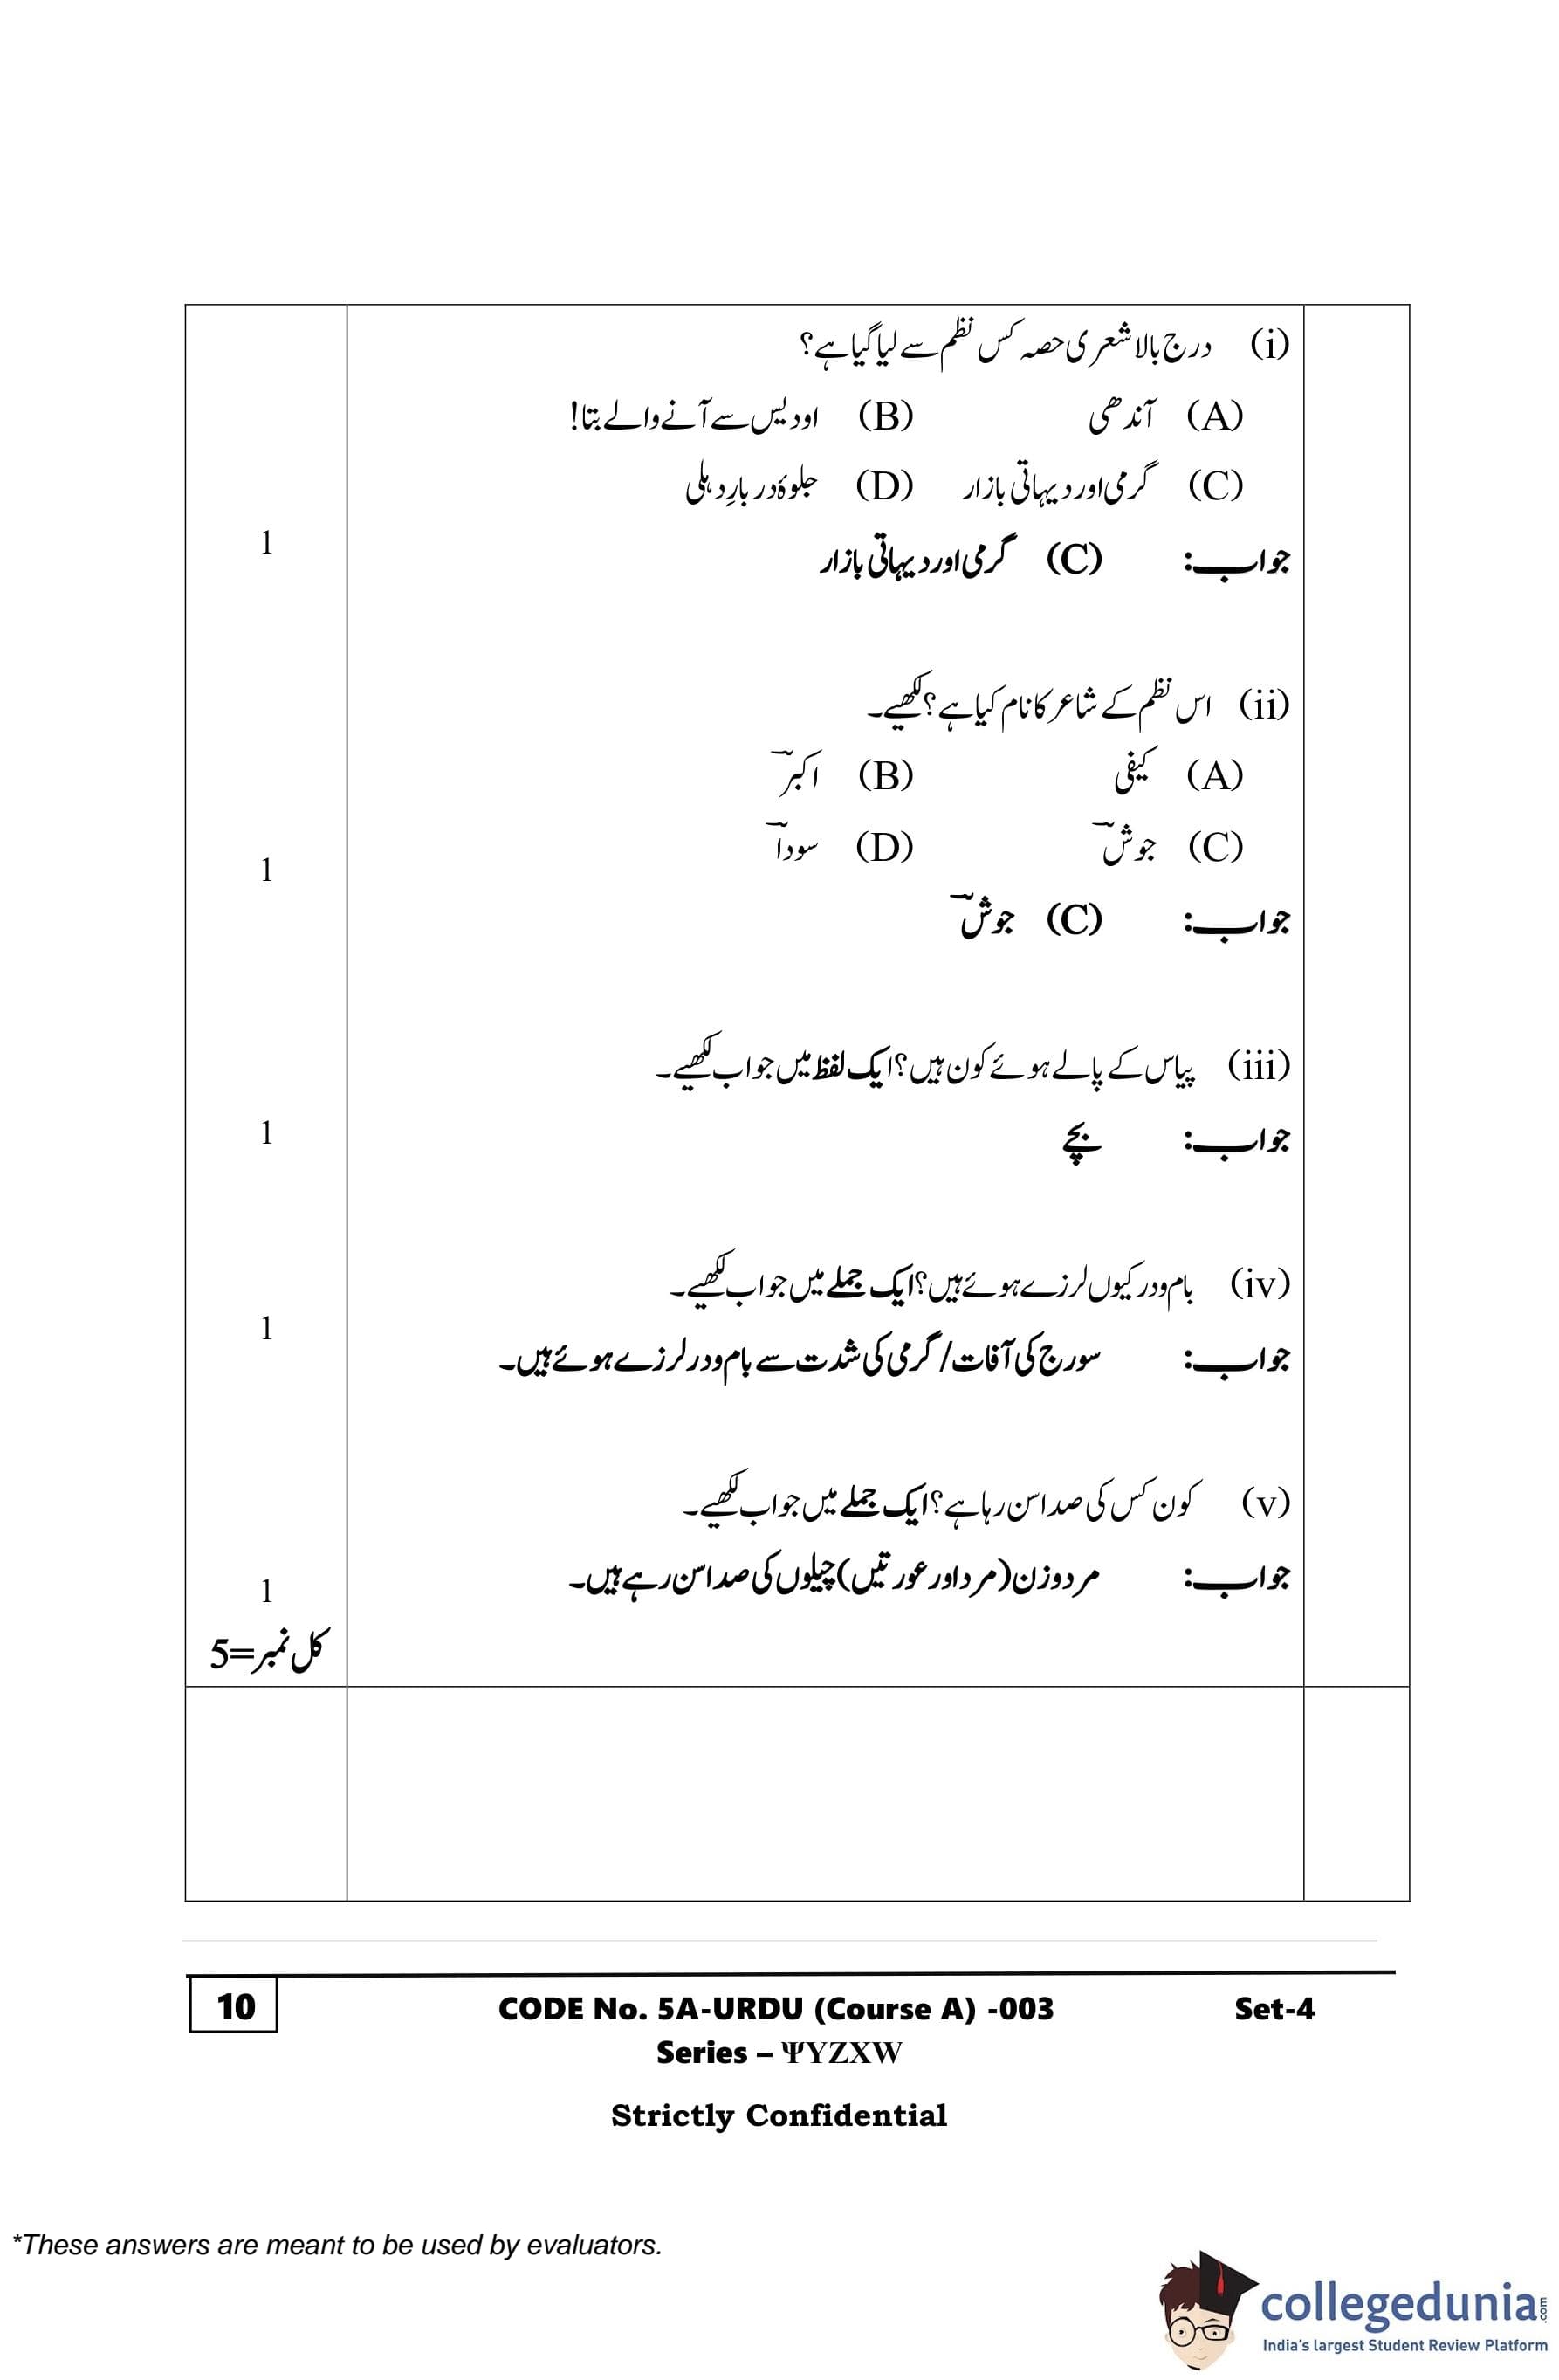 (i) درج بالا شعری حصہ کس نظم سے لیا گیا ہے؟
(A) آندھی (B) او دیس سے آنے والے بتا!
(C) گرمی اور دیہاتی بازار (D) جلوۂ دربارِ دہلی
جواب: (C) گرمی اور دیہاتی بازار
1
(ii) اس نظم کے شاعر کا نام کیا ہے؟ لکھیے۔
(A) کیفی (B) اکبرؔ
(C) جوشؔ (D) سوداؔ
جواب: (C) جوشؔ
1
(iii) پیاس کے پالے ہوئے کون ہیں؟ ایک لفظ میں جواب لکھیے۔
جواب: بچے
1
(iv) بام و در کیوں لرزے ہوئے ہیں؟ ایک جملے میں جواب لکھیے۔
جواب: سورج کی آفات/ گرمی کی شدت سے بام و در لرزے ہوئے ہیں۔
1
(v) کون کس کی صدا سن رہا ہے؟ ایک جملے میں جواب لکھیے۔
جواب: مرد وزن (مرد اور عورتیں) چیلوں کی صدا سن رہے ہیں۔
1
کل نمبر=5
10 CODE No. 5A-URDU (Course A) -003 Set-4
Series – ΨYZXW
Strictly Confidential
*These answers are meant to be used by evaluators.
collegedunia.com
India's largest Student Review Platform